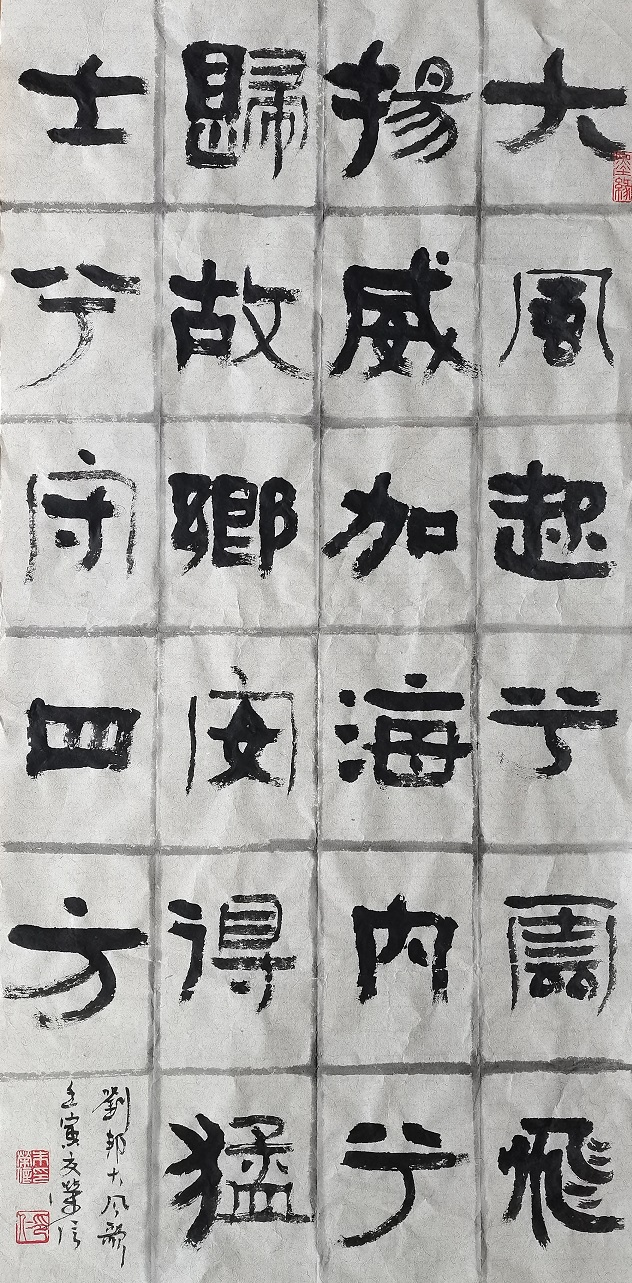 大風起兮雲飛
揚威加海内兮
歸故鄉安得猛
士兮守四方
劉邦大風歌
壬寅
墨緣